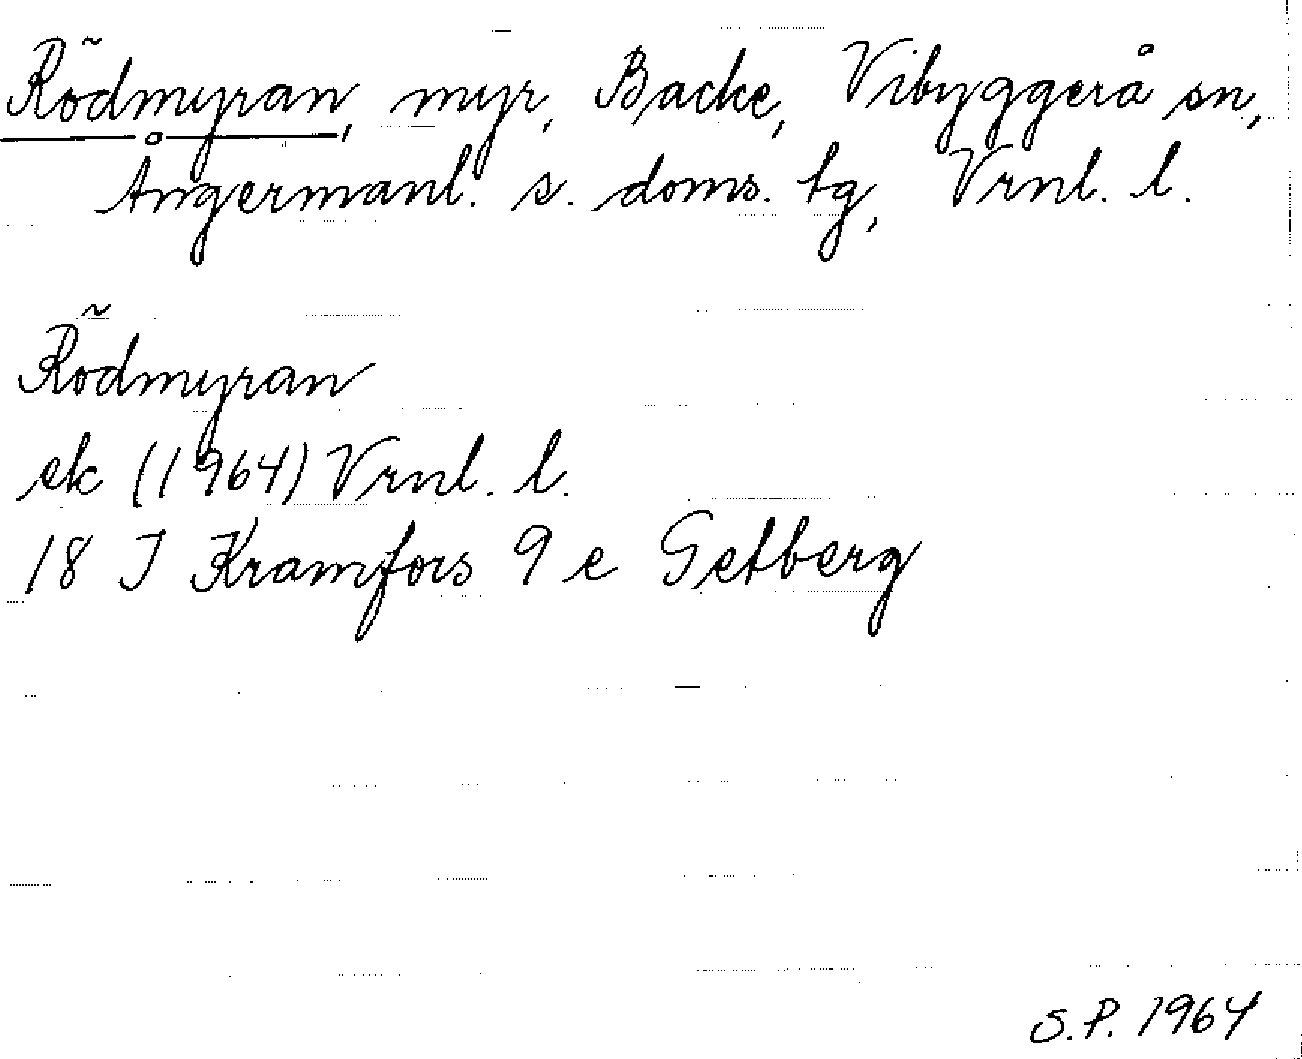 Rödmyran, myr, Backe, Vibyggerå sn,
Ångermanl. s. doms. tg, Vrnl. l.
Rödmyran
ek (1964) Vrnl. l.
18 J Kramfors 9 e Getberg
S.P. 1964